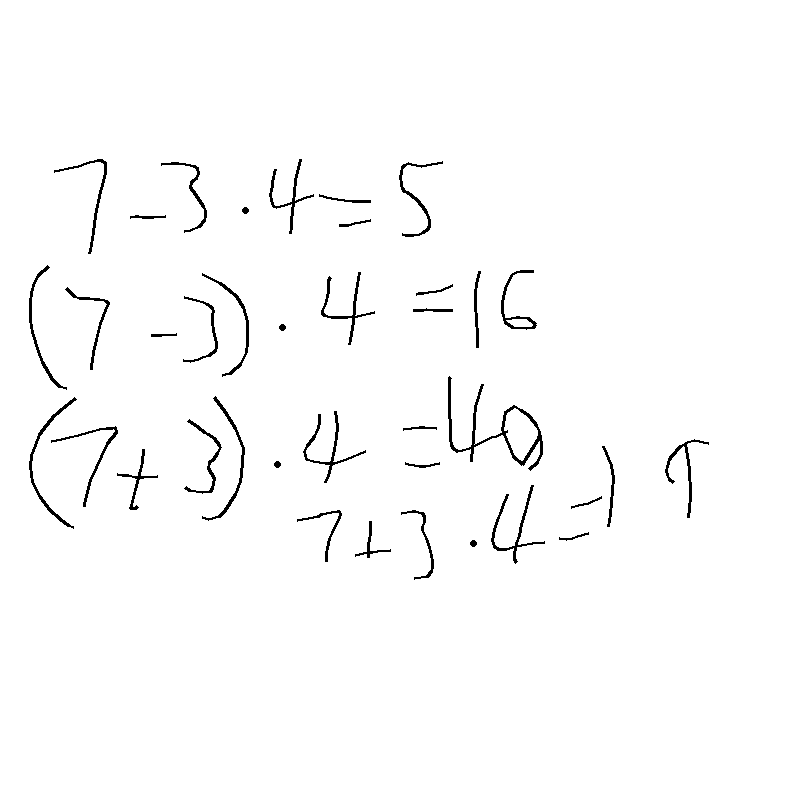 7-3·4=5
(7-3)·4=16
(7+3)·4=40
7+3·4=19